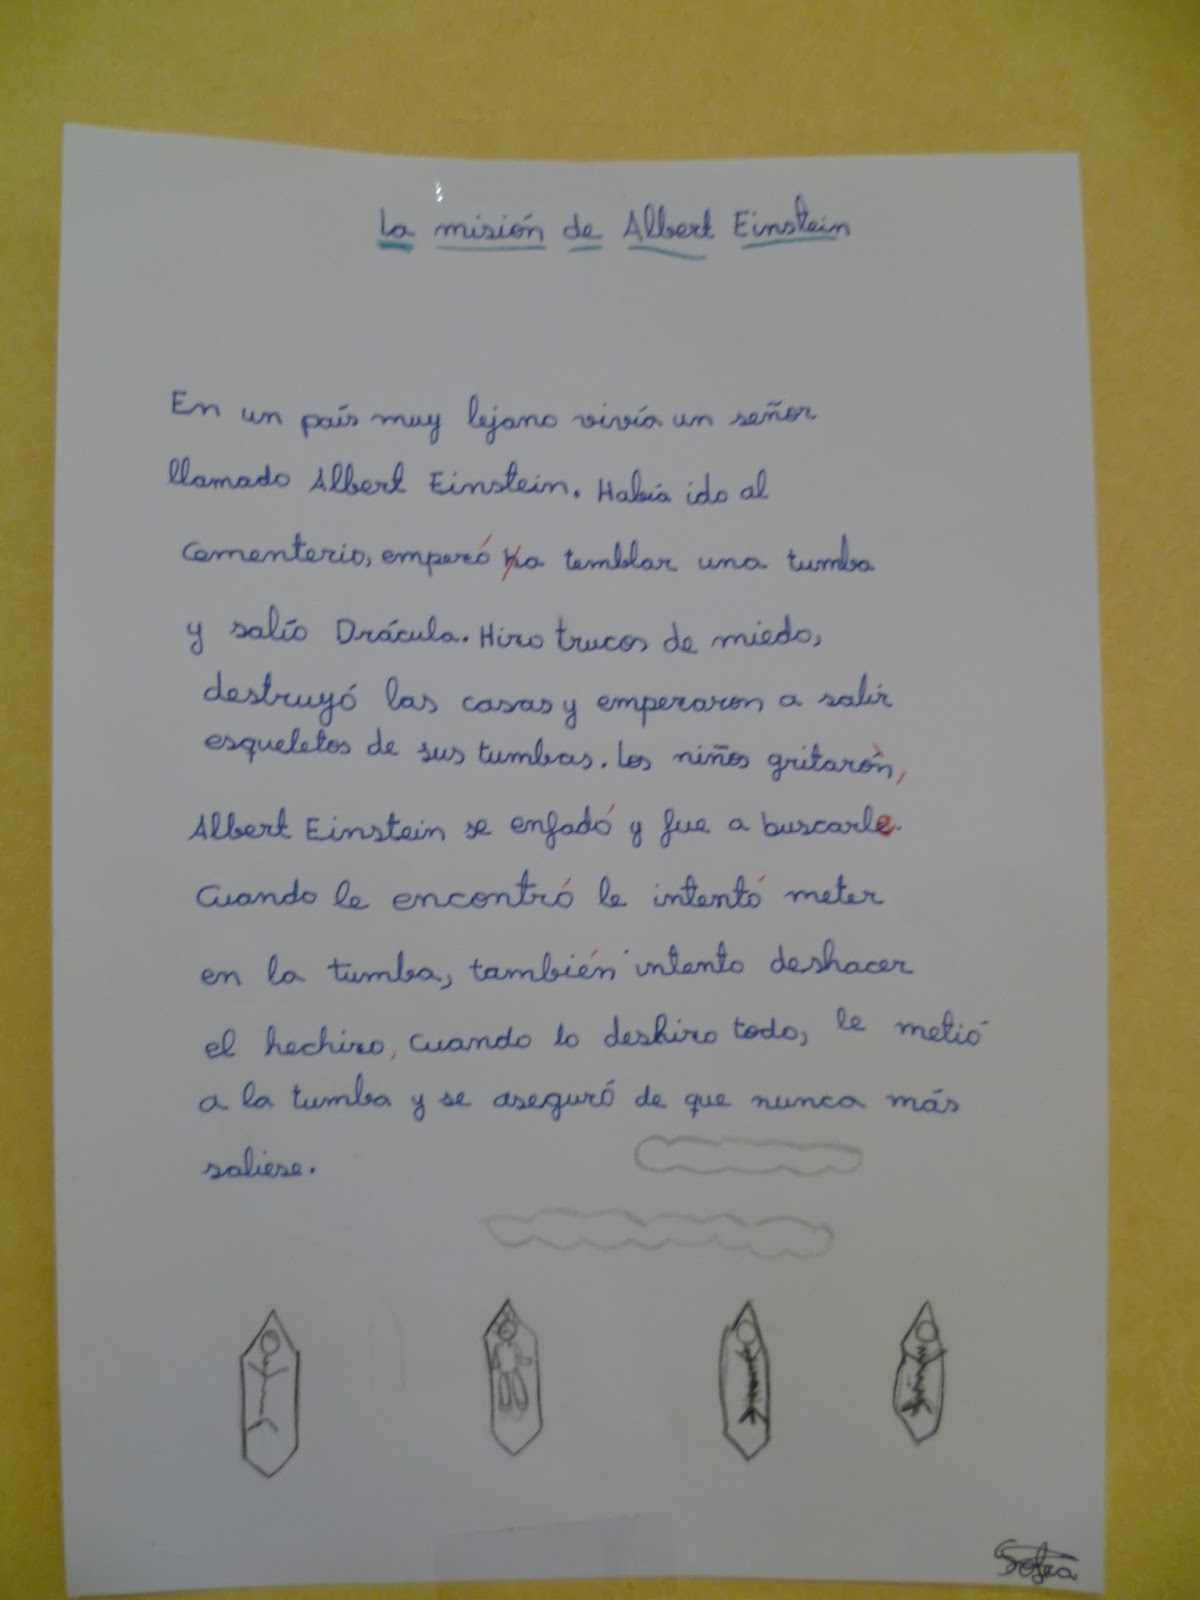 La misión de Albert Einstein
En un país muy lejano vivía un señor
llamado Albert Einstein. Había ido al
cementerio, empezó a temblar una tumba
y salío Drácula. Hizo trucos de miedo,
destruyó las casas y empezaron a salir
esqueletos de sus tumbas. Los niños gritarón,
Albert Einstein se enfadó y fue a buscarle.
Cuando le encontró le intentó meter
en la tumba, también intento deshacer
el hechizo, cuando lo deshizo todo, le metió
a la tumba y se aseguró de que nunca más
saliese.
Sofía